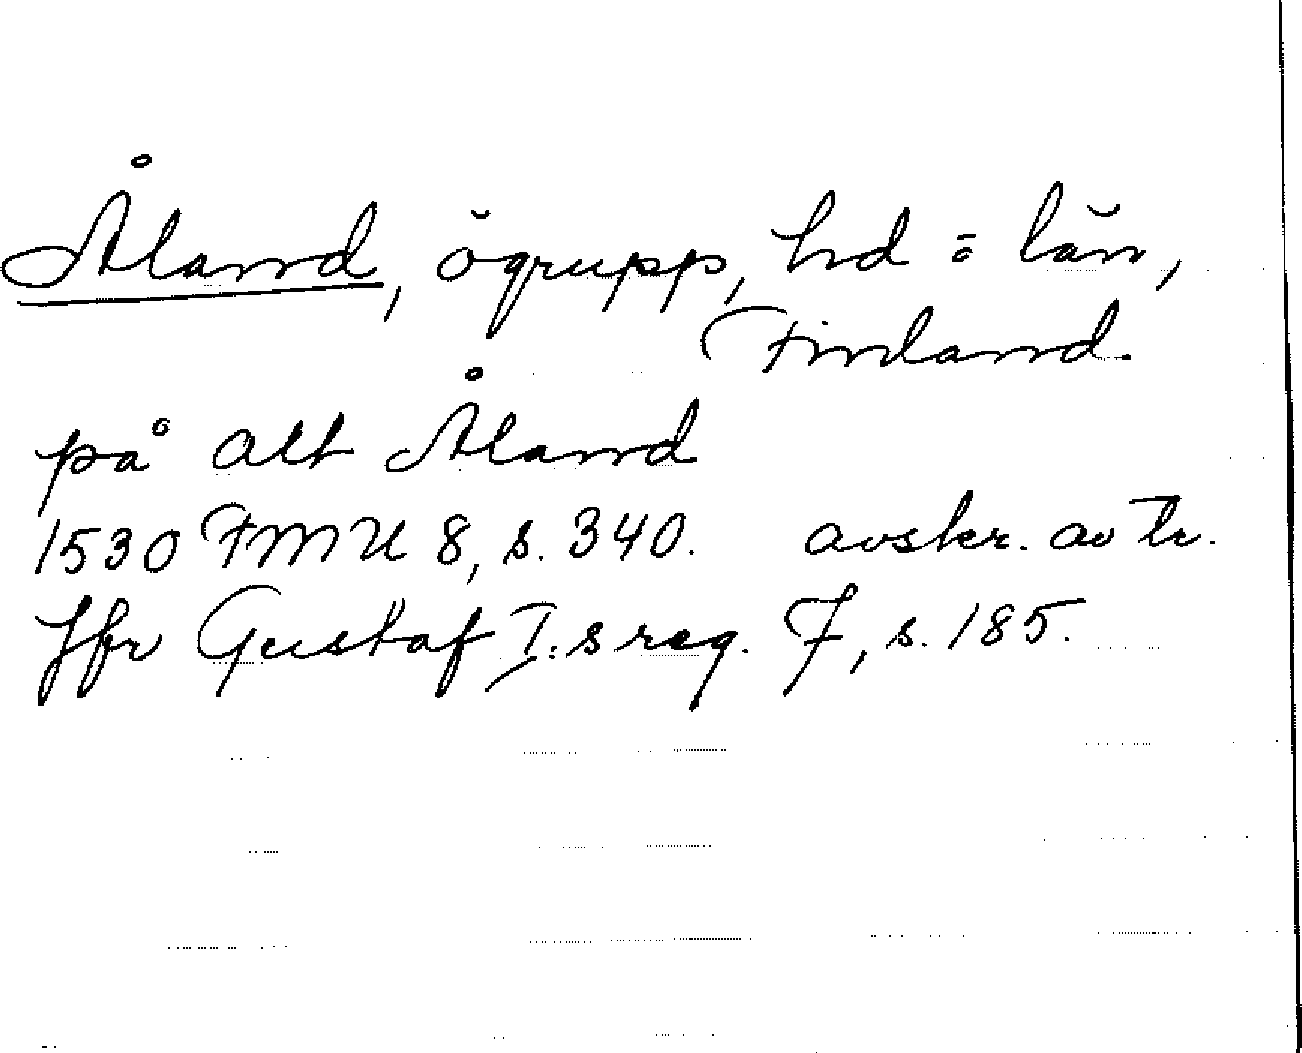 Åland, ögrupp, hd = län,
Finland.
på alt Åland
1530 FMU 8, s. 340. avskr. av tr.
Jfr Gustaf I:s reg. 7, s. 185.